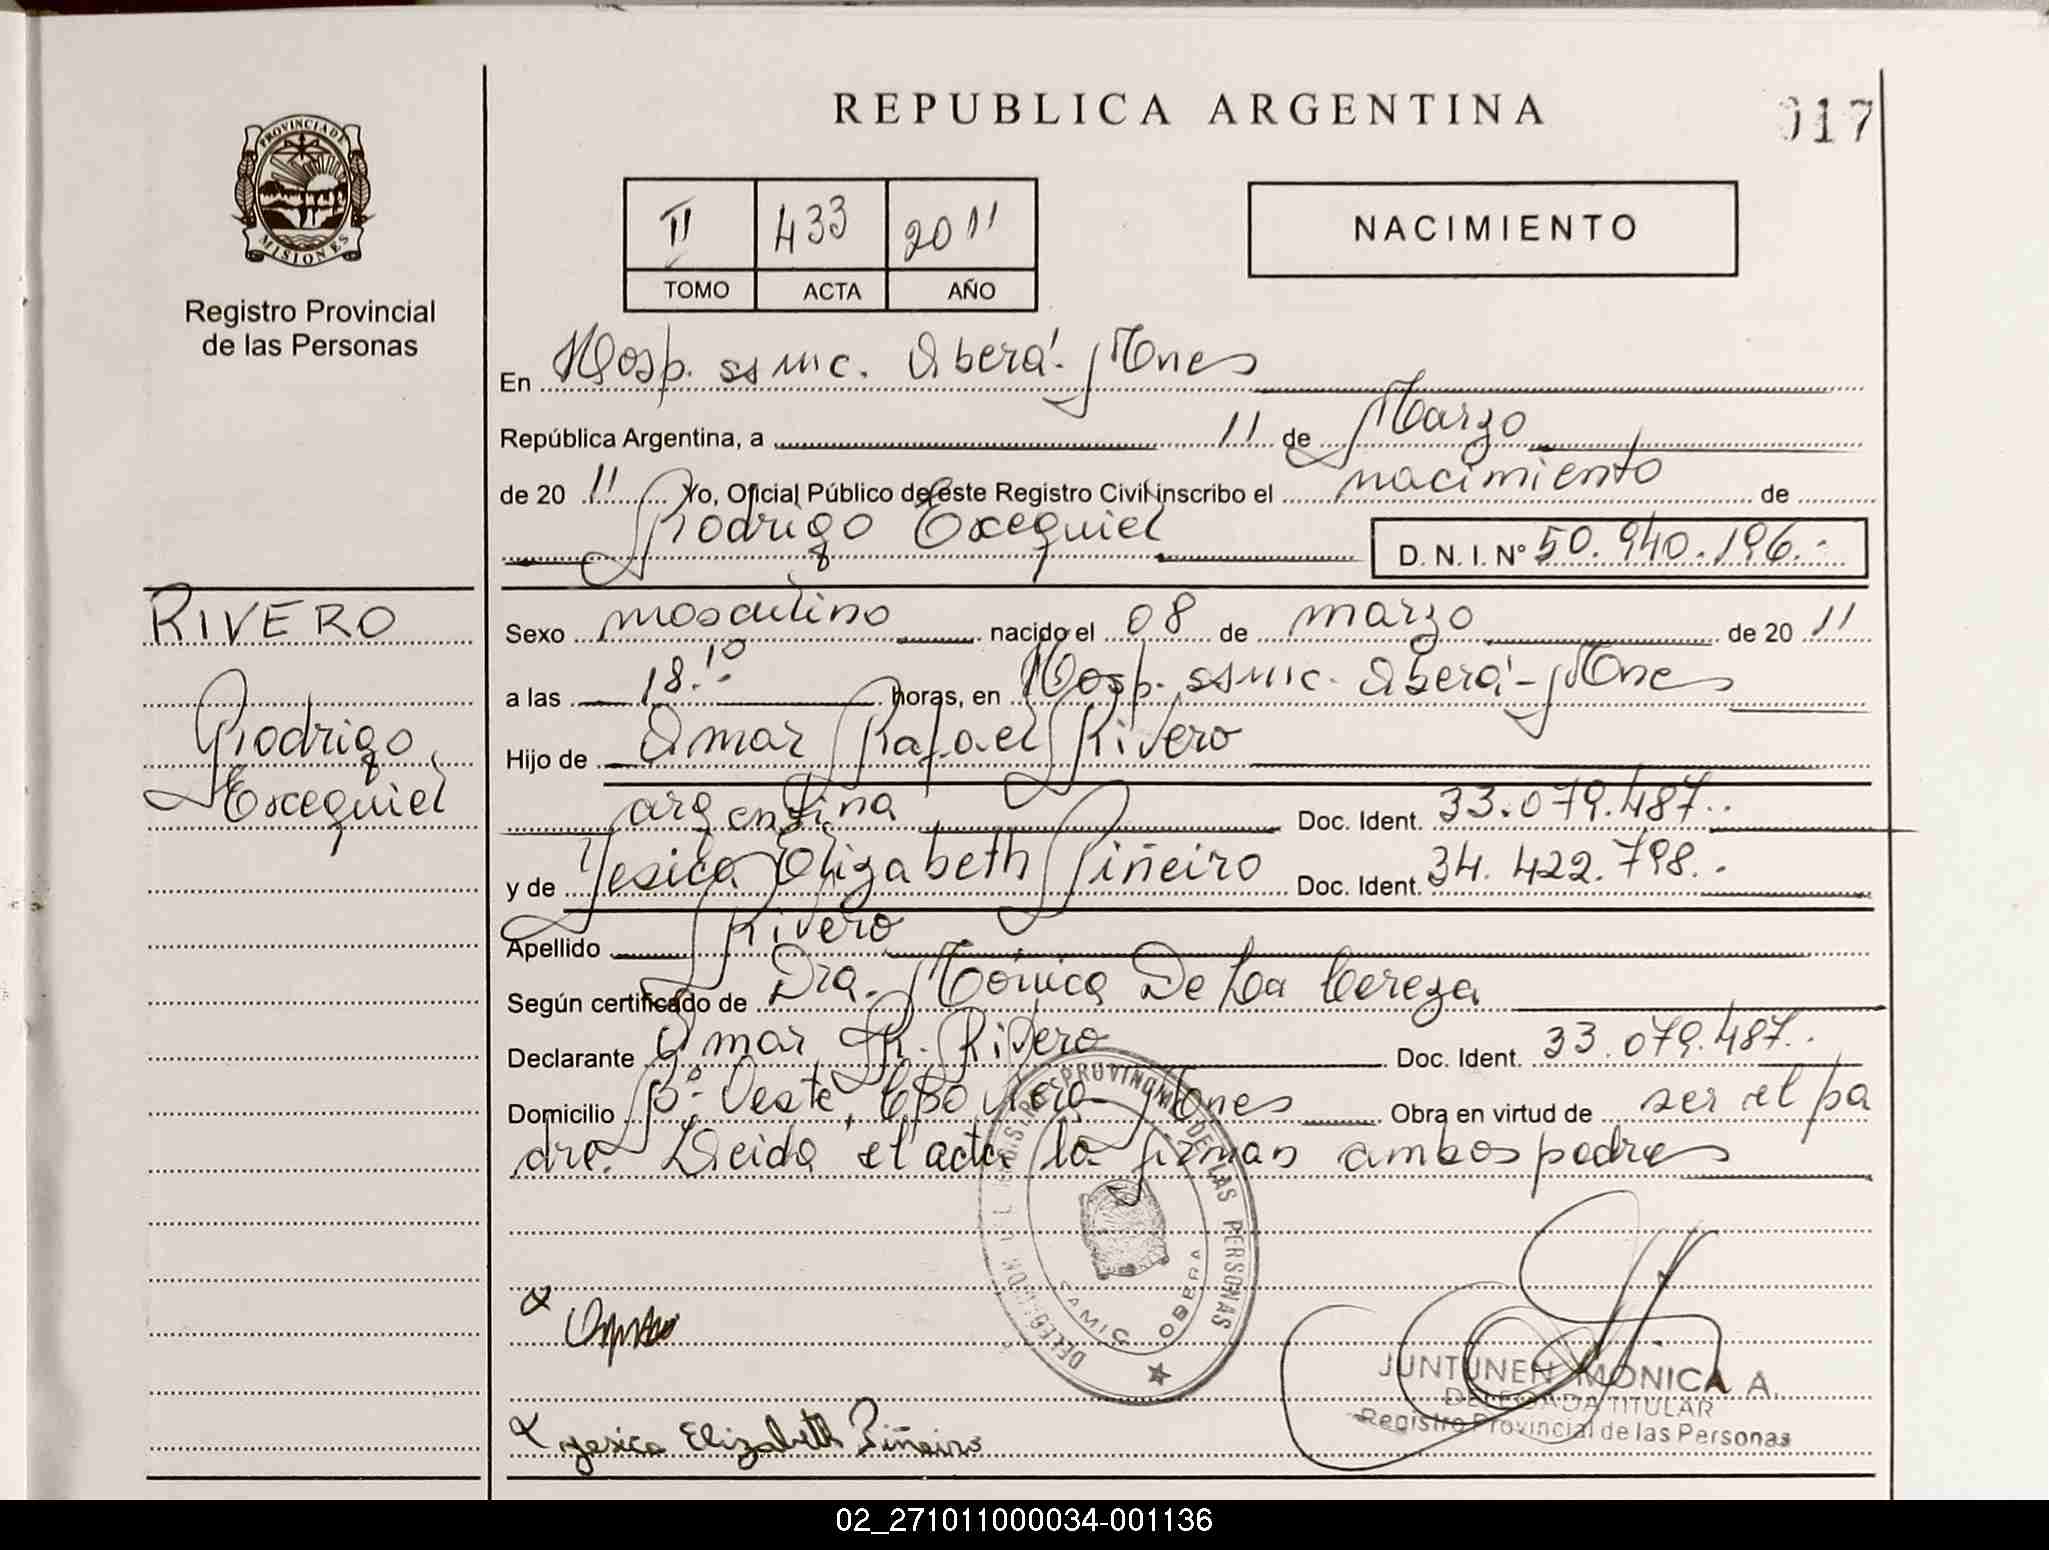 REPUBLICA ARGENTINA
017
PROVINCIA DE
MISIONES
Registro Provincial
de las Personas
II 433 2011
TOMO ACTA AÑO
NACIMIENTO
En Hosp. ssmic. Oberá - Mnes
República Argentina, a 11 de Marzo
de 20 11 Yo, Oficial Público de este Registro Civil inscribo el nacimiento de
Rodrigo Exequiel D. N. I. N° 50.940.196.-
RIVERO
Rodrigo
Exequiel
Sexo masculino nacido el 08 de marzo de 20 11
a las 18.10 horas, en Hosp. ssmic. Oberá - Mnes
Hijo de Omar Rafael Rivero
argentina Doc. Ident. 33.079.487.-
y de Yesica Elizabeth Piñeiro Doc. Ident. 34.422.798.-
Apellido Rivero
Según certificado de Dra. Mónica De La Cereza
Declarante Omar R. Rivero Doc. Ident. 33.079.487.-
Domicilio Bº Oeste, Mnes Obra en virtud de ser el pa
dre. Leida el acta la firman ambos padres
DELEGACION DEL REGISTRO PROVINCIAL DE LAS PERSONAS
SAMIC OBERA
JUNTUNEN MONICA A.
DELEGADA TITULAR
Registro Provincial de las Personas
Yesica Elizabeth Piñeiro
02_271011000034-001136